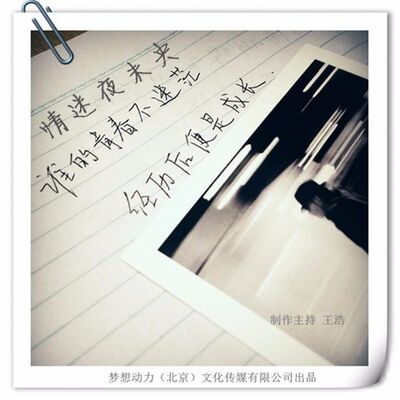 情迷夜未央
谁的青春不迷茫
经历后便是成长.
制作主持 王浩
梦想动力（北京）文化传媒有限公司出品